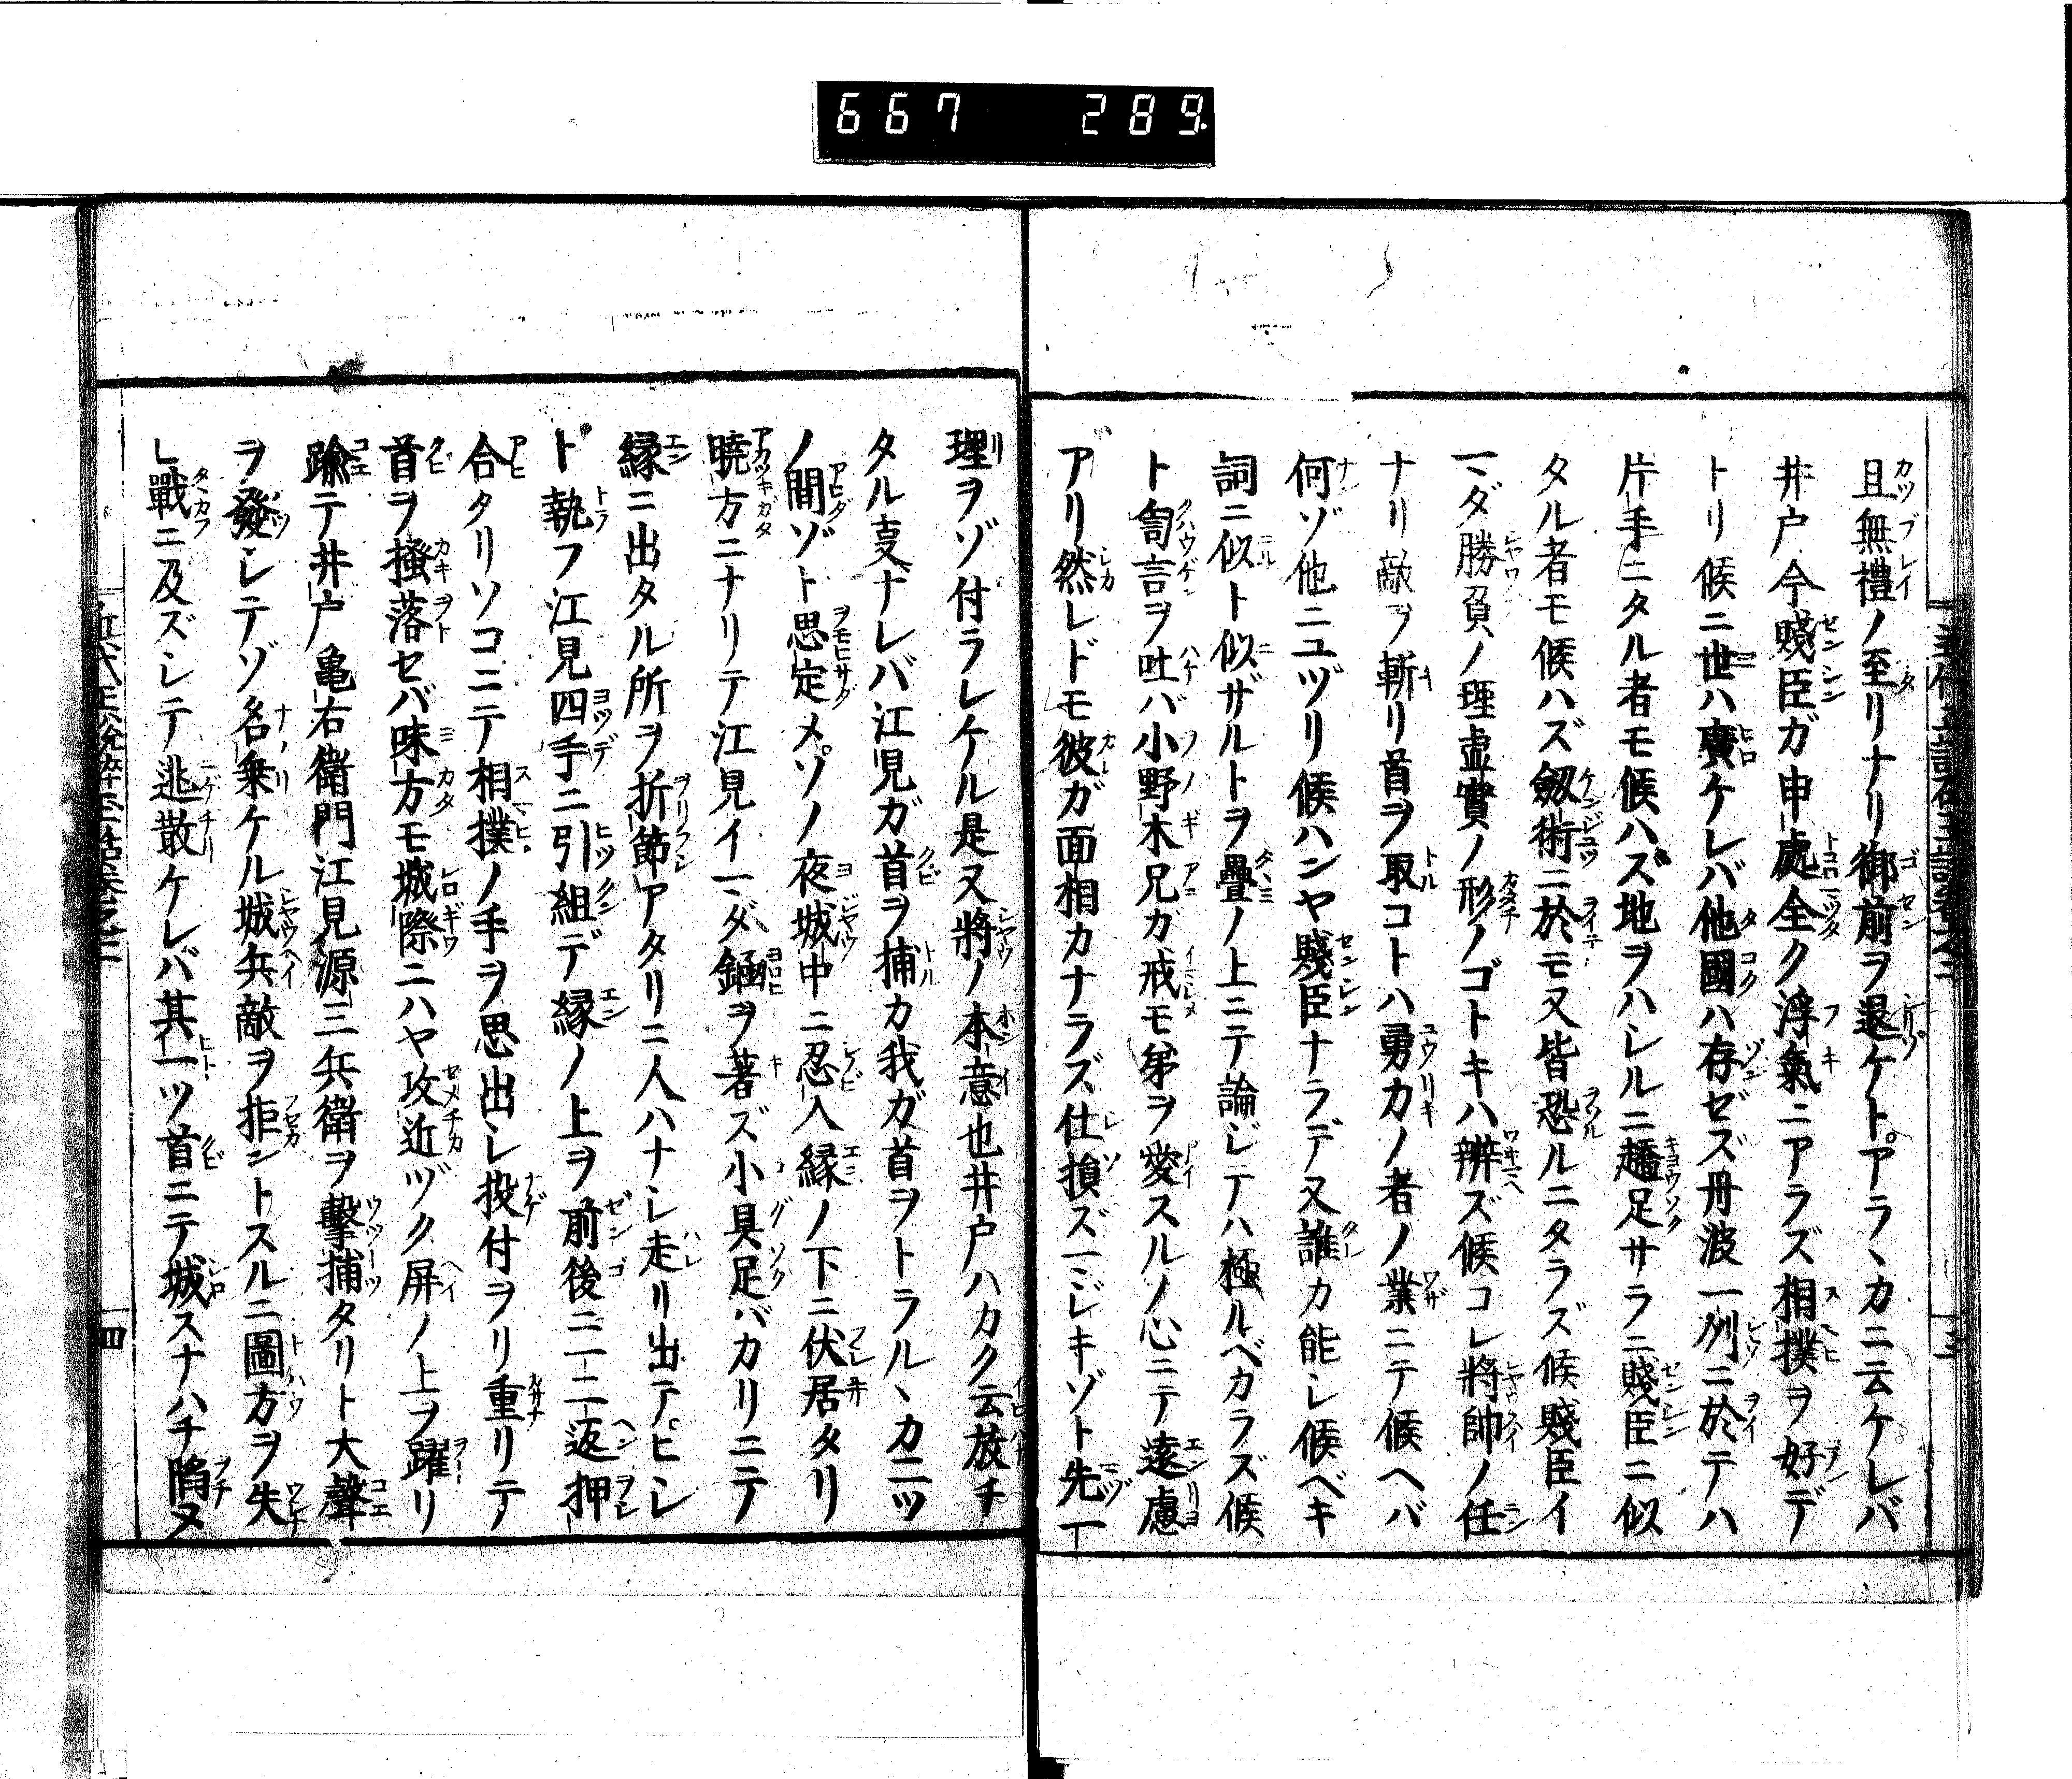 667 289.
且無禮ノ至リナリ御前ヲ退ケトアラヽカニ云ケレバ
井戸今賤臣ガ申處全ク浮氣ニアラズ相撲ヲ好デ
トリ候ニ世ハ廣ケレバ他國ハ存ゼズ丹波一州ニ於テハ
片手ニタル者モ候ハズ地ヲハシルニ趫足サラニ賤臣ニ似
タル者モ候ハズ劔術ニ於モ又皆恐ルニタラズ候賤臣イ
マダ勝負ノ理虚實ノ形ノゴトキハ辨ズ候コレ將帥ノ任
ナリ敵ヲ斬リ首ヲ取コトハ勇力ノ者ノ業ニテ候ヘバ
何ゾ他ニユヅリ候ハンヤ賤臣ナラデ又誰カ能シ候ベキ
詞ニ似ト似ザルトヲ疊ノ上ニテ論ジテハ極ルベカラズ候
ト訇言ヲ吐バ小野木兄ガ戒モ弟ヲ愛スルノ心ニテ遠慮
アリ然レドモ彼ガ面相カナラズ仕損ズマジキゾト先一
理ヲゾ付ラレケル是又將ノ本意也井戸ハカク云放チ
タル叓ナレバ江見ガ首ヲ捕カ我ガ首ヲトラルヽカ二ツ
ノ間ゾト思定メソノ夜城中ニ忍入縁ノ下ニ伏居タリ
暁方ニナリテ江見イマダ鎧ヲ著ズ小具足バカリニテ
縁ニ出タル所ヲ折節アタリニ人ハナシ走リ出テヒシ
ト執フ江見四手ニ引組デ縁ノ上ヲ前後ニ一二返押
合タリソコニテ相撲ノ手ヲ思出シ投付ヲリ重リテ
首ヲ搔落セバ味方モ城際ニハヤ攻近ヅク屏ノ上ヲ躍リ
踰テ井戸亀右衛門江見源三兵衛ヲ擊捕タリト大聲
ヲ發シテゾ名乗ケル城兵敵ヲ拒ントスルニ圖方ヲ失
レ戰ニ及ズシテ逃散ケレバ其一ツ首ニテ城スナハチ陷ヌ
四